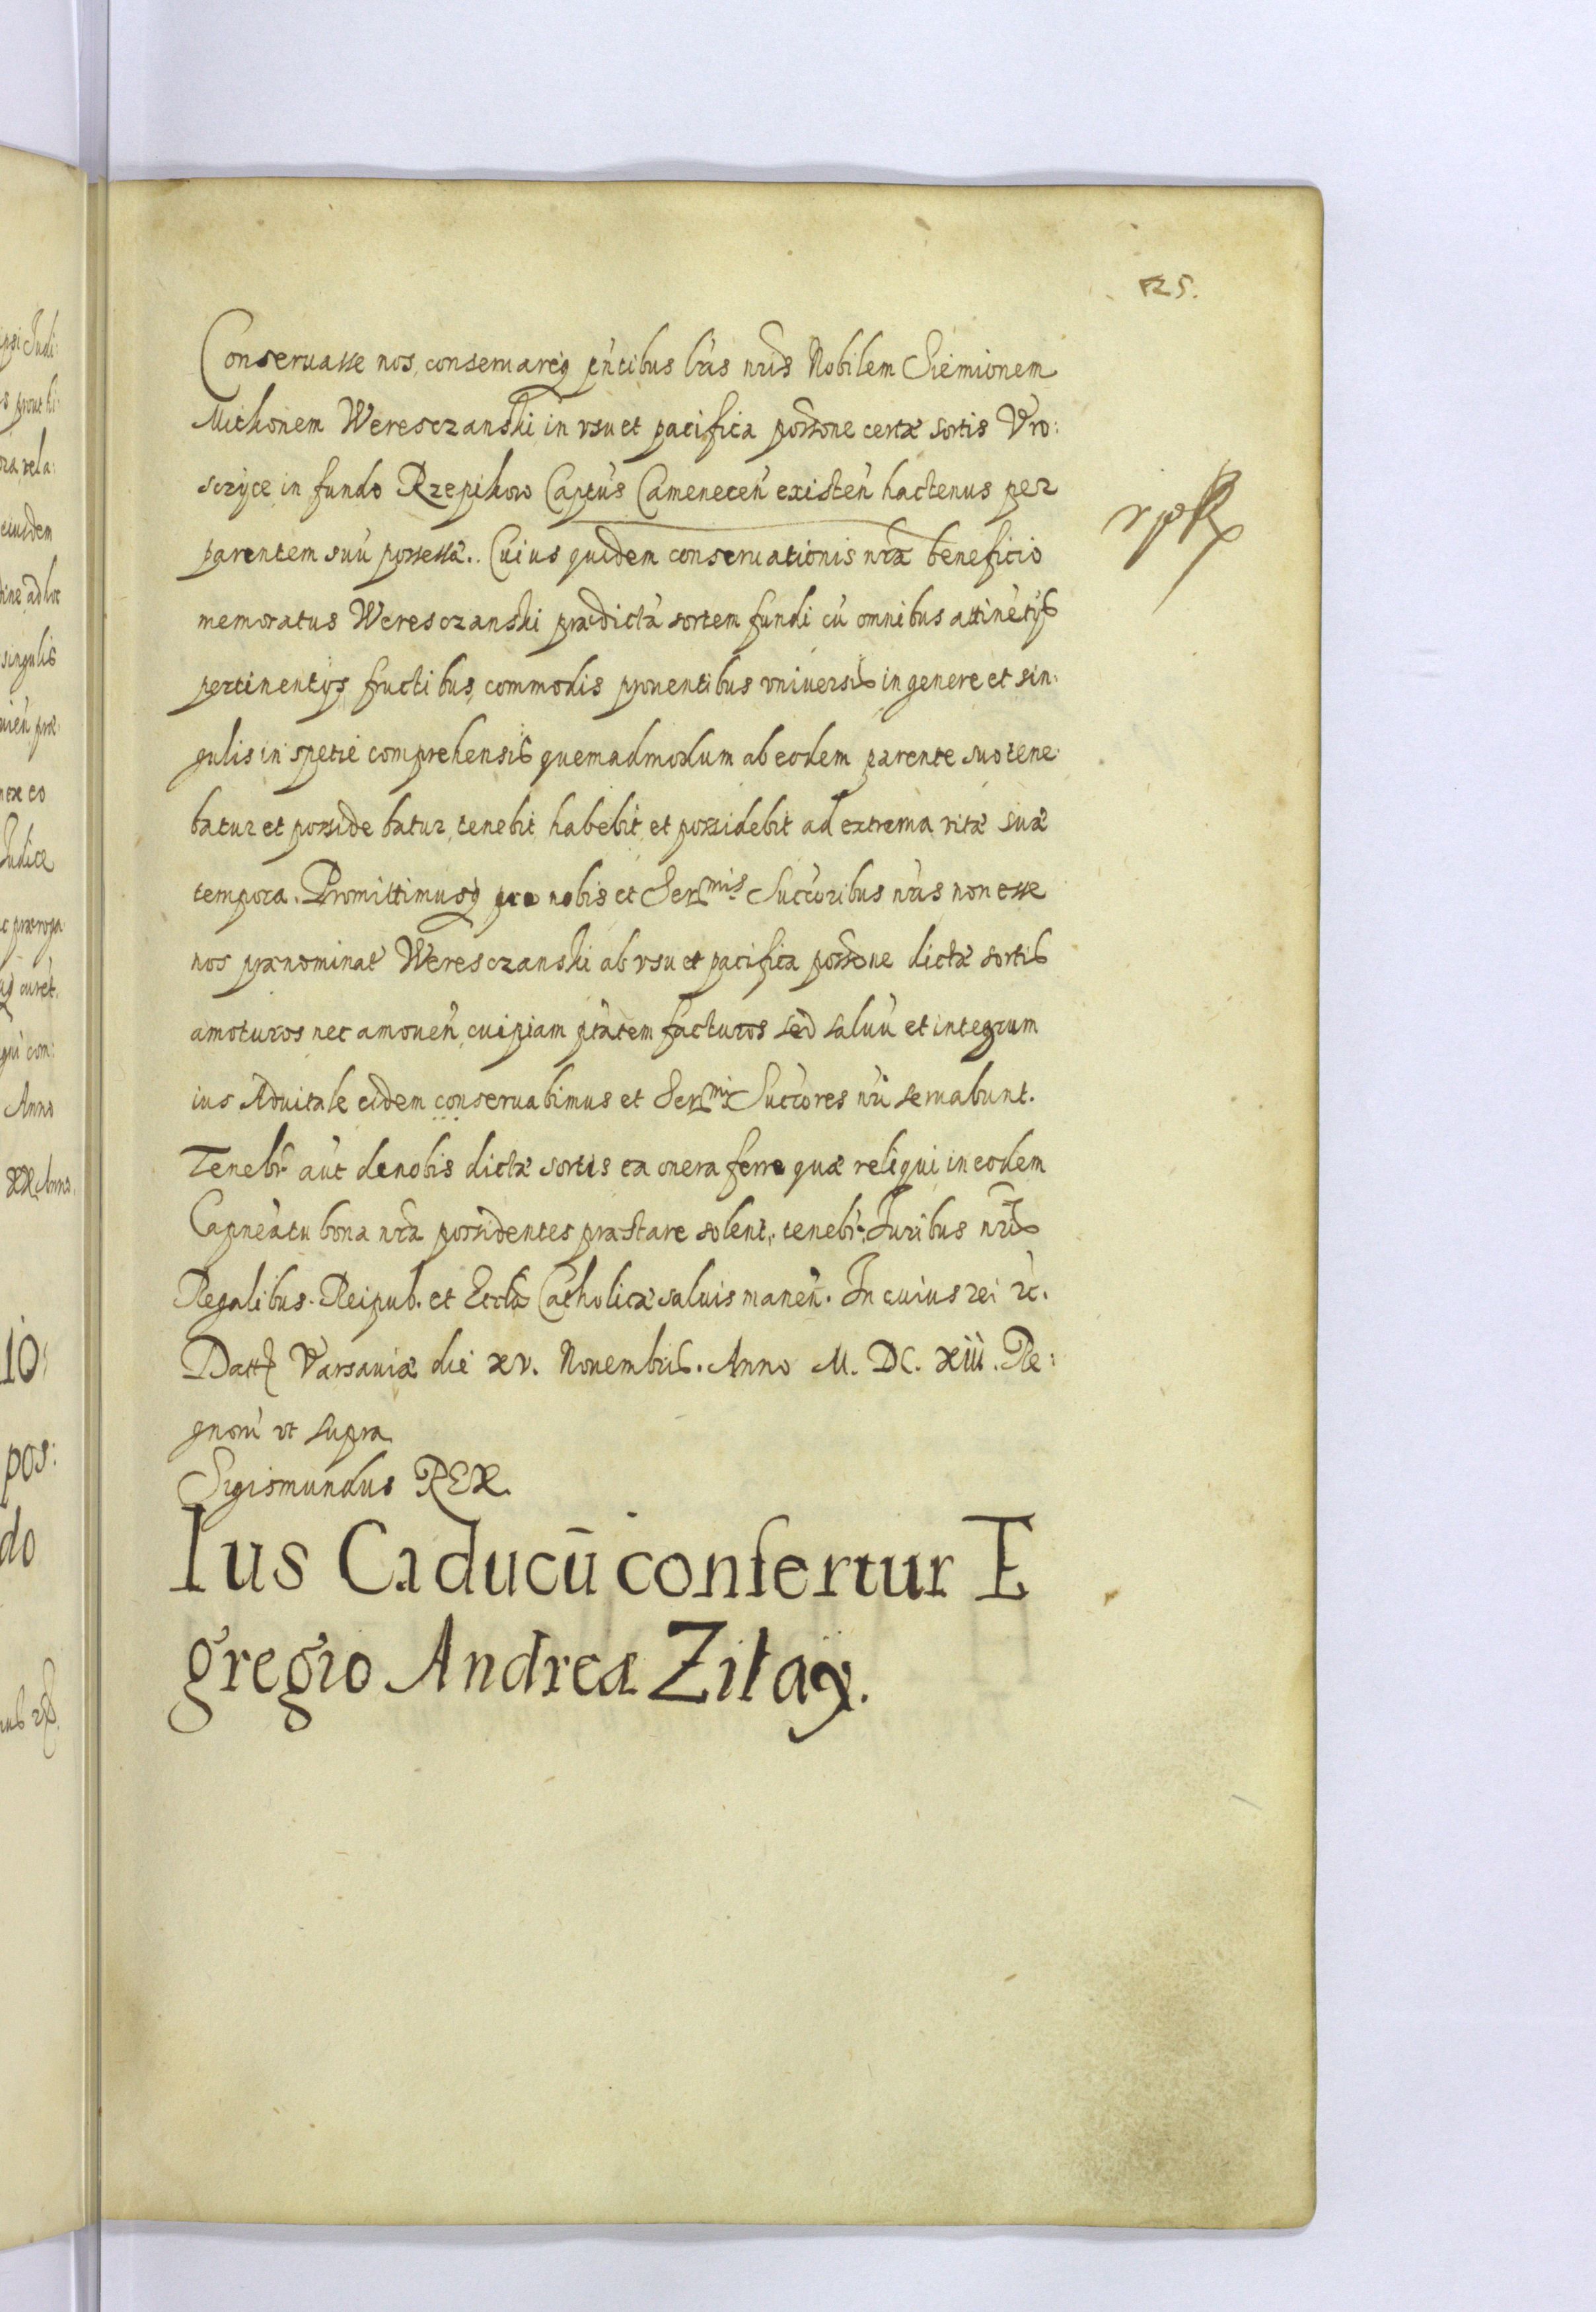 125.
Conseruasse nos, conseruareq̃ pñtibus lr̃as nr̃is Nobilem Siemionem
Mithonem Weresczanski in vsu et pacifica possõne certæ sortis Vro:
sczyce in fundo Rzepikow Captũs Cameneceñ existeñ hactenus per
parentem suũ possessã. Cuius quidem conseruationis nr̃æ beneficio
memoratus Weresczanski prædictã sortem fundi cũ omnibus attinẽtijs
pertinentijs, fructibus, commodis prouentibus vniuersis in genere et sin:
gulis in spetie comprehensis quemadmodum ab eodem parente suo tene:
batur et posside batur, tenebit, habebit, et possidebit ad extrema vitæ suæ
tempora. Promittimusq̃ pro nobis et Ser̃mis Succõribus nr̃is non esse
nos prænominat̃ Weresczanski ab vsu et pacifica possõne dictæ sortis
amoturos nec amoueñ, cuipiam ptãtem facturos sed saluũ et integrum
ius Aduitale eidem conseruabimus et Ser̃mi Succõres nr̃i seruabunt.
Tenebr̃ aũt de nobis dictæ sortis ea onera ferre quæ reliqui in eodem
Capneãtu bona nr̃a possidentes præstare solent, tenebr̃. Iuribus nr̃is
Regalibus. Reipub. et Ecclæ Catholicæ saluis maneñ. In cuius rei &c.
Datt Varsauiæ die xv. Nouembris. Anno M. DC. xiii. Re:
gnorũ vt supra
Sigismundus REX.
Ius Caducũ confertur E
gregio Andreæ Zitaÿ.